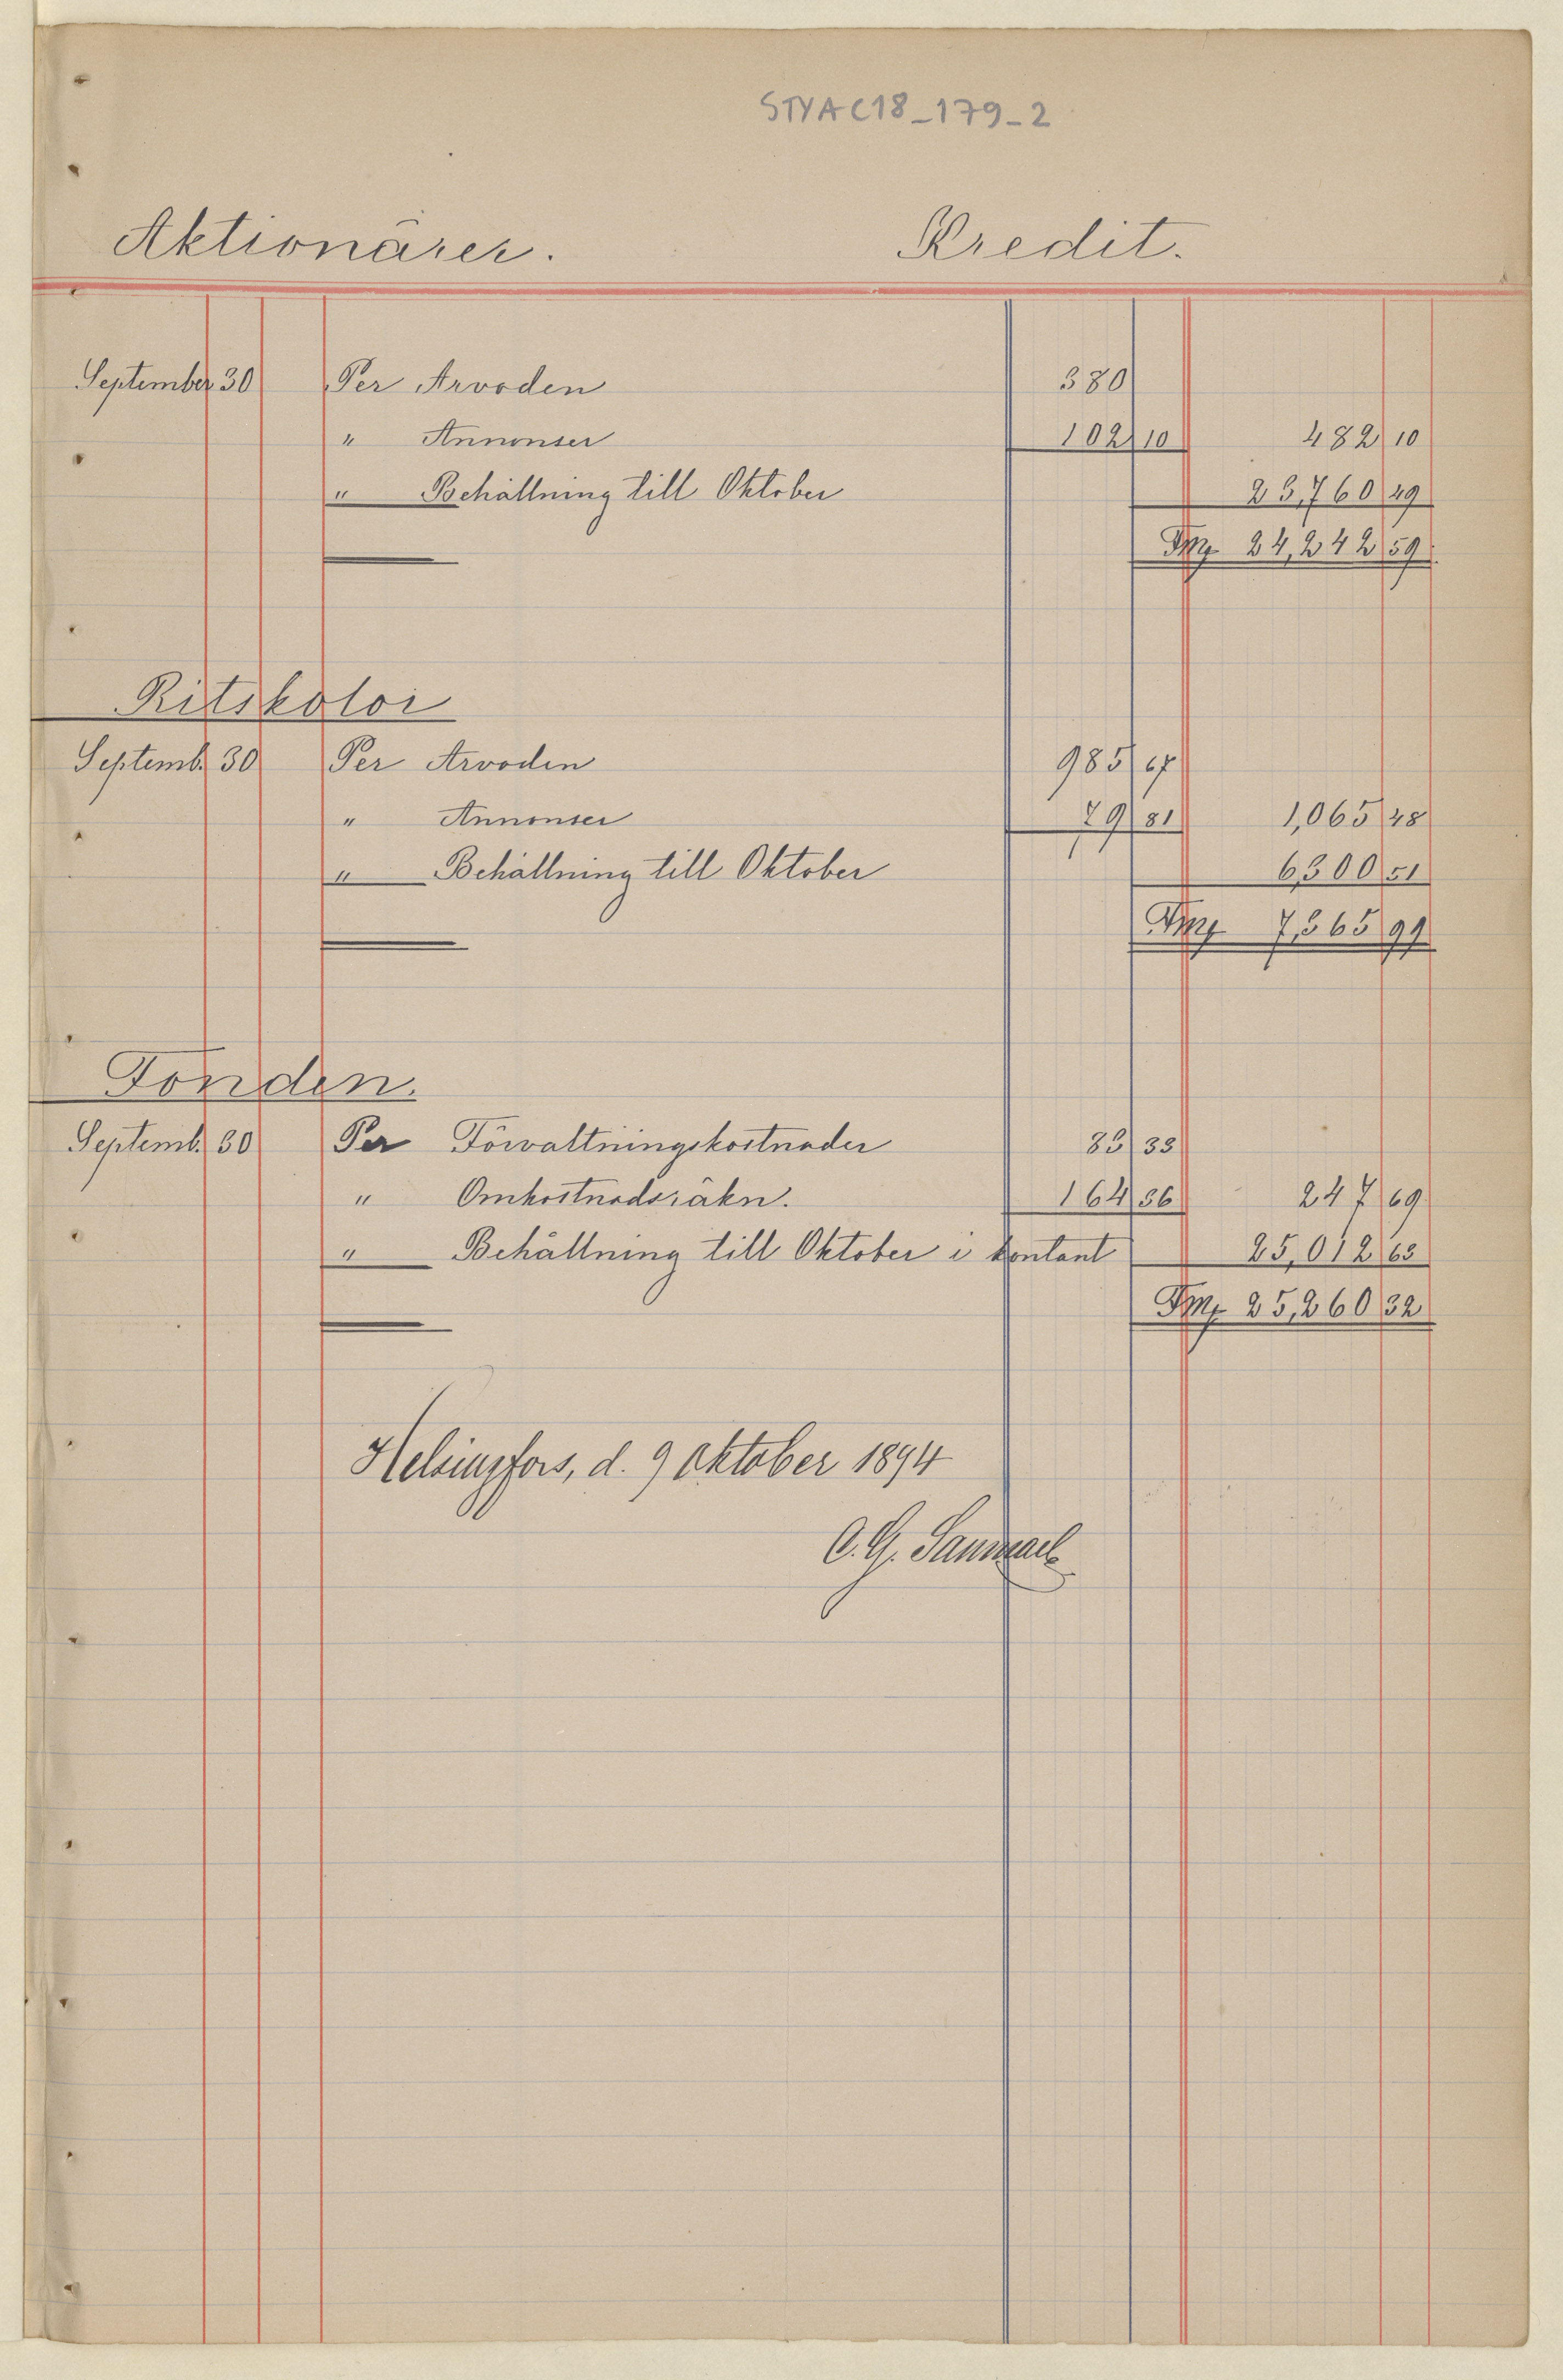 STYA C18_179_2
Aktionärer. Kredit.
September 30 Per Arvoden 380
" Annonser 102 10 482 10
" Behållning till Oktober 23,760 49
Fmk 24,242 59
Ritskolor
Septemb. 30 Per Arvoden 985 67
" Annonser 79 81 1,065 48
" Behållning till Oktober 6,300 51
Fmk 7,365 99
Fonden.
Septemb. 30 Per Förvaltningskostnader 83 33
" Omkostnadsräkn. 164 36 247 69
" Behållning till Oktober i kontant 25,012 63
Fmk 25,260 32
Helsingfors, d. 9 Oktober 1894
C. G. Sanmark